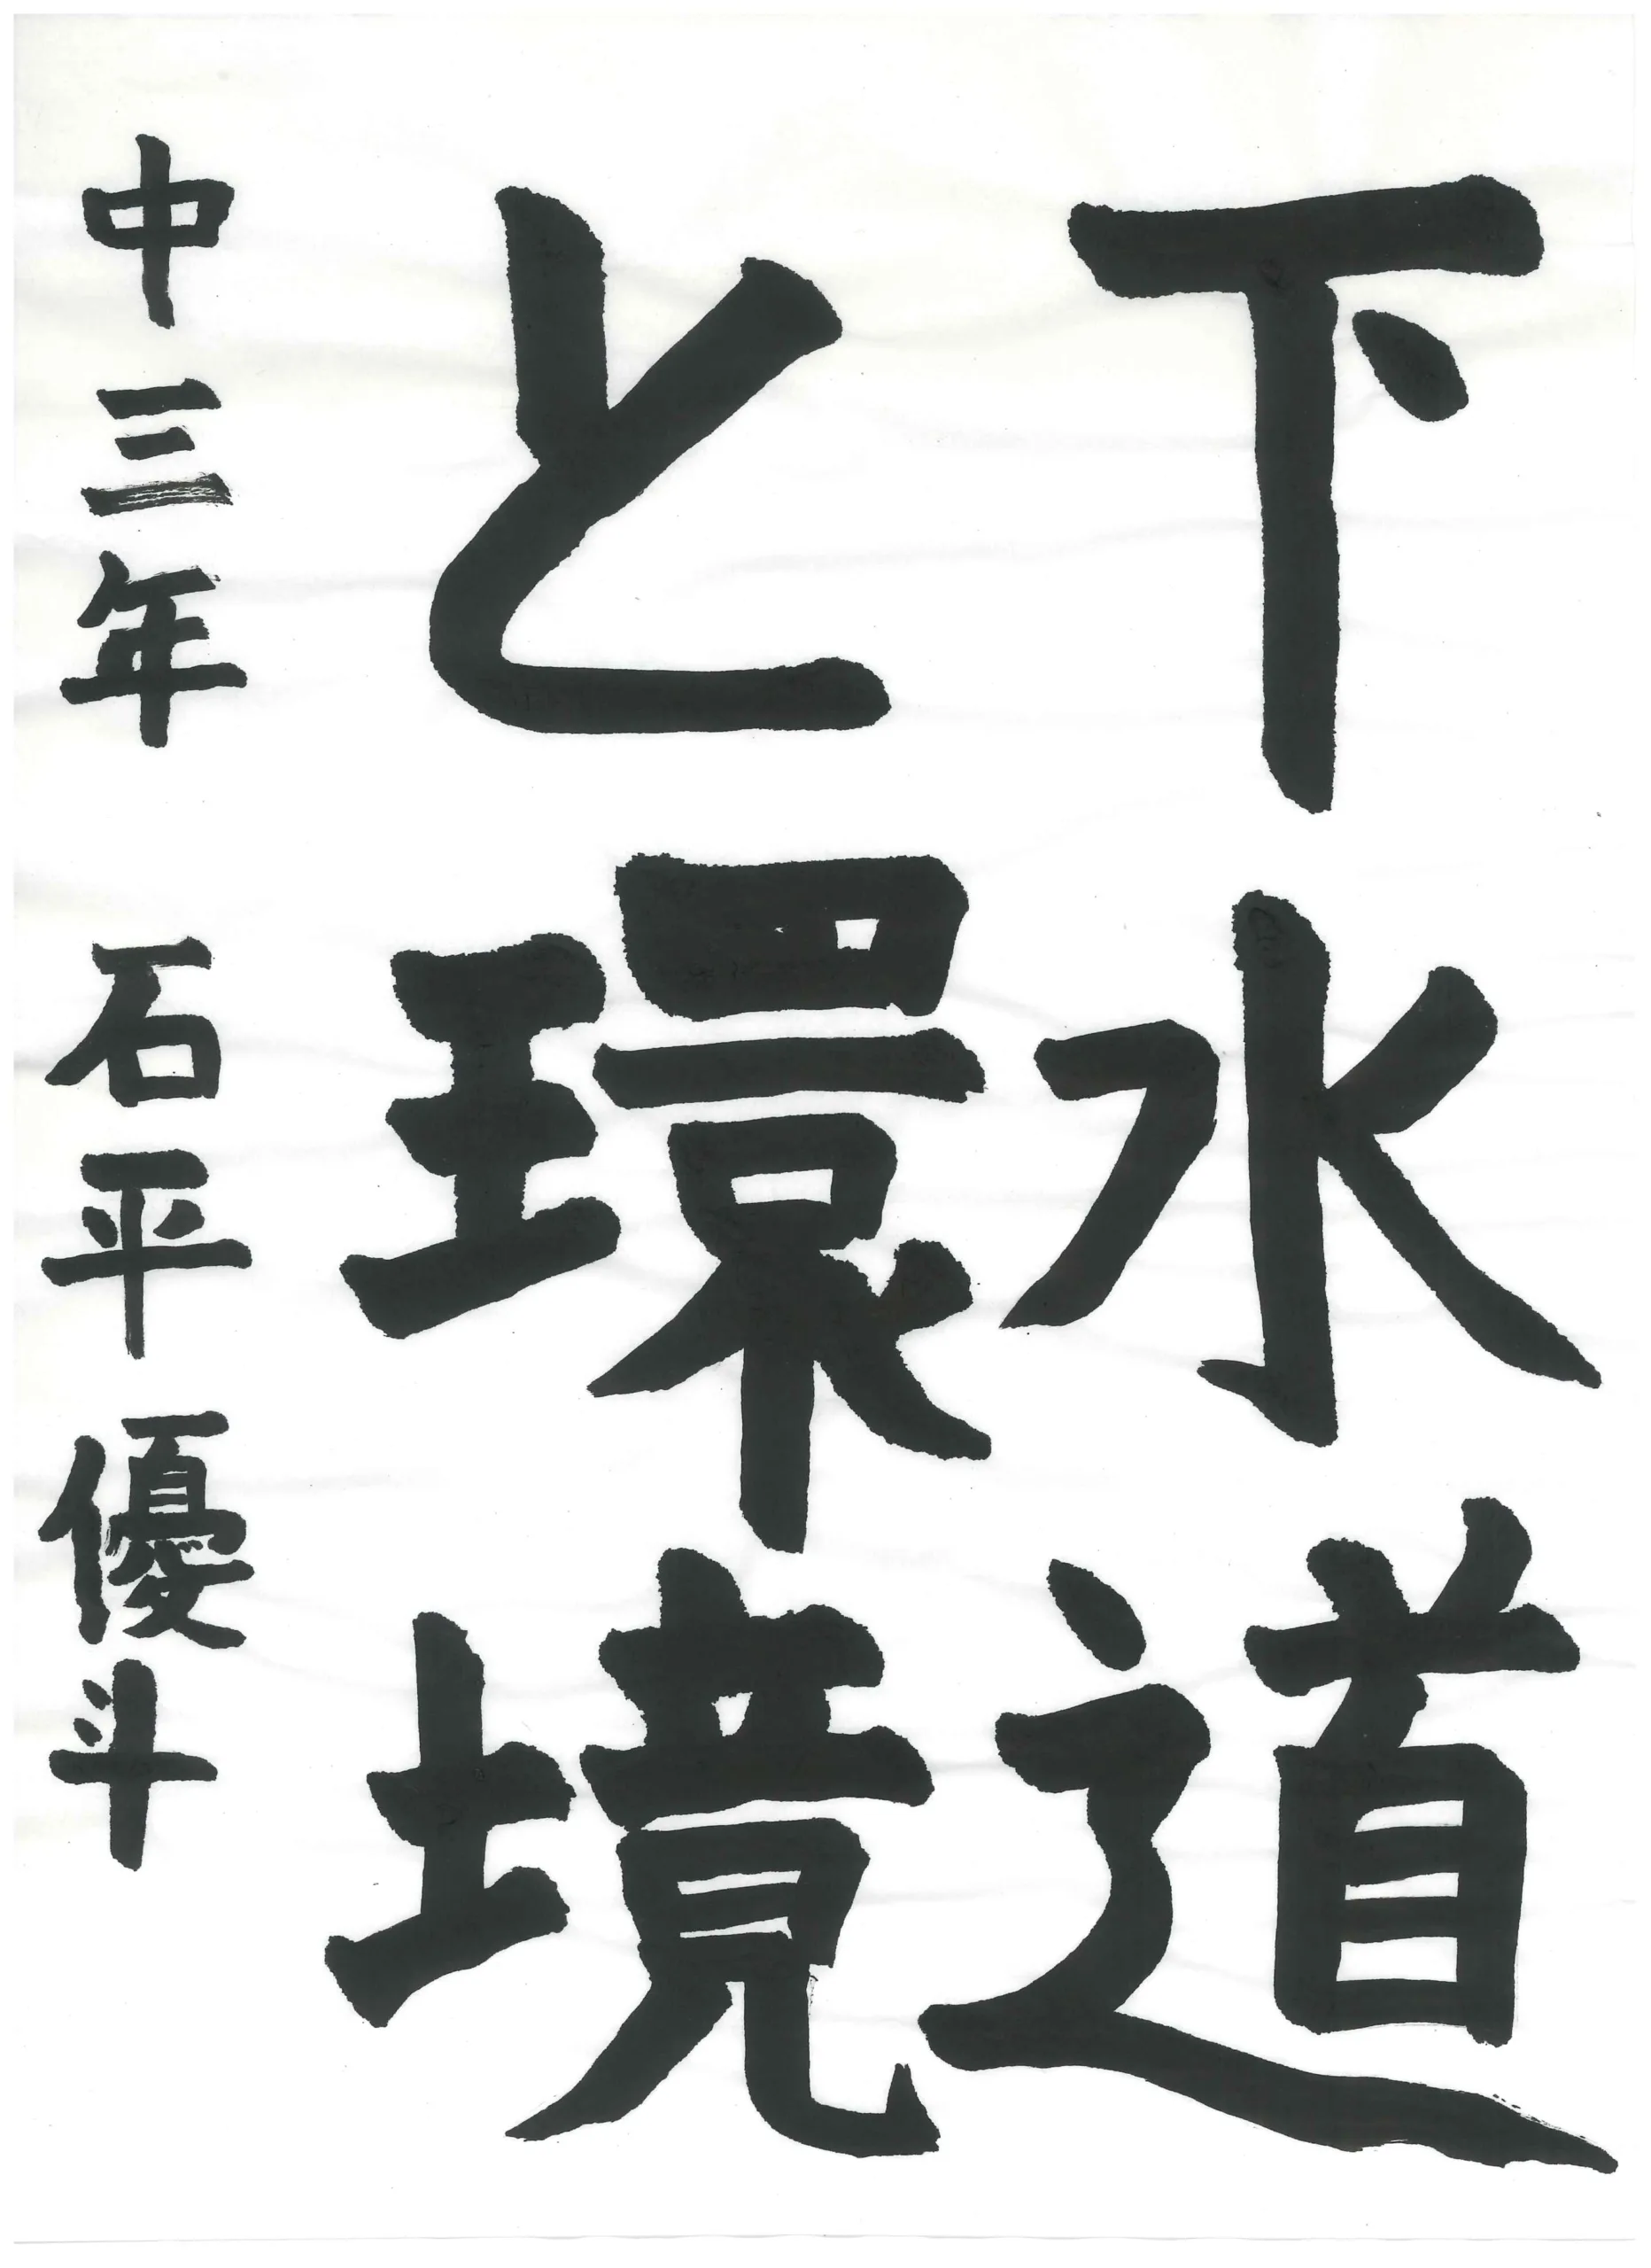 下水道
と環境
中三年 石平優斗